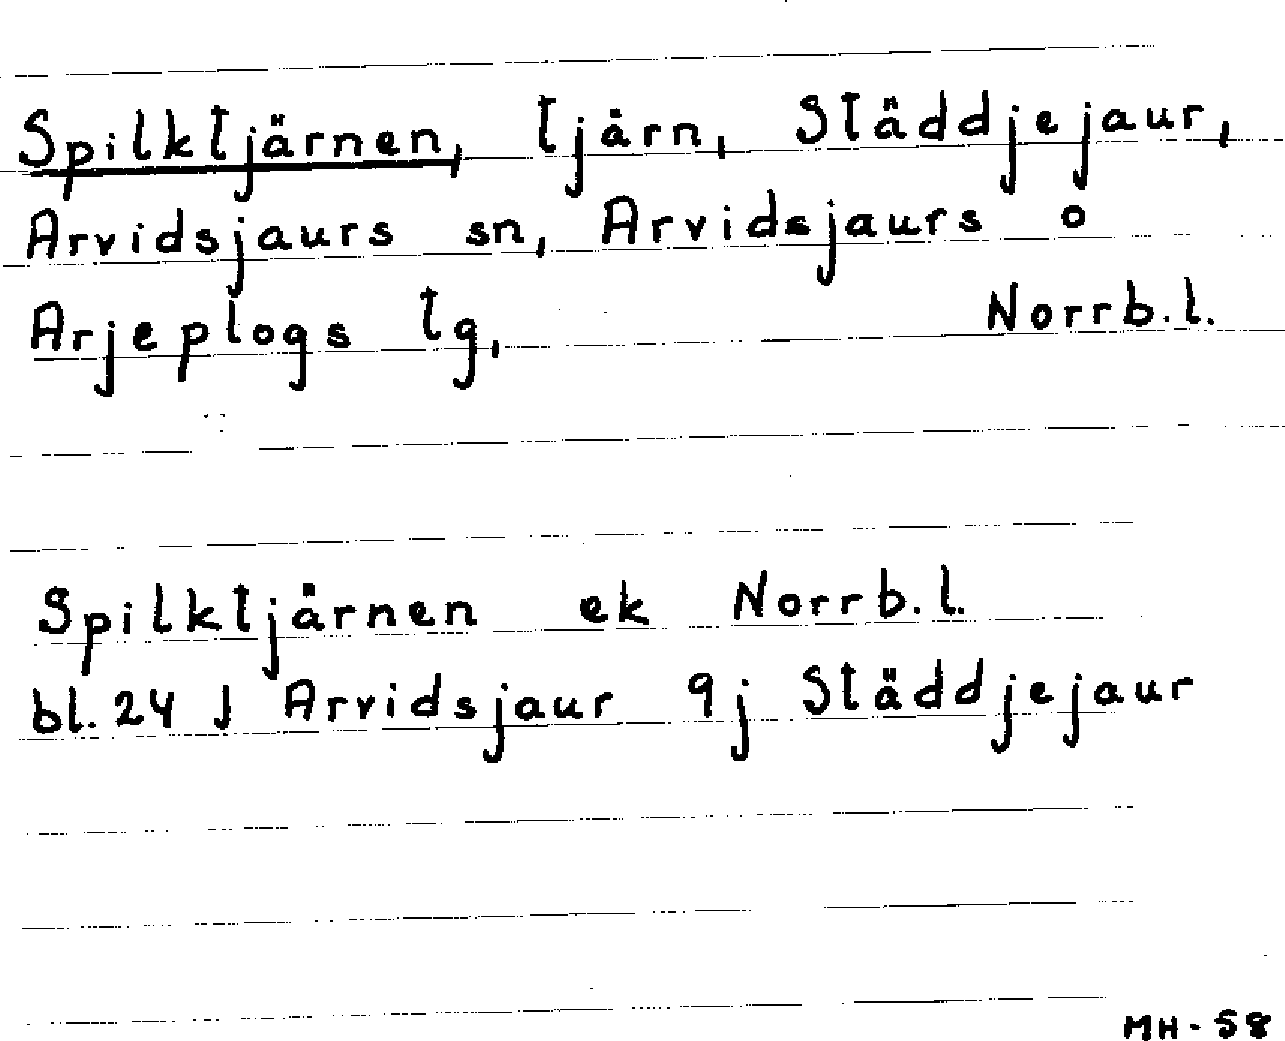 Spilktjärnen, tjärn, Städdjejaur,
Arvidsjaurs sn, Arvidsjaurs o
Arjeplogs tg, Norrb.l.
Spilktjärnen ek Norrb.l.
bl. 24 J Arvidsjaur 9j Städdjejaur
MH-58